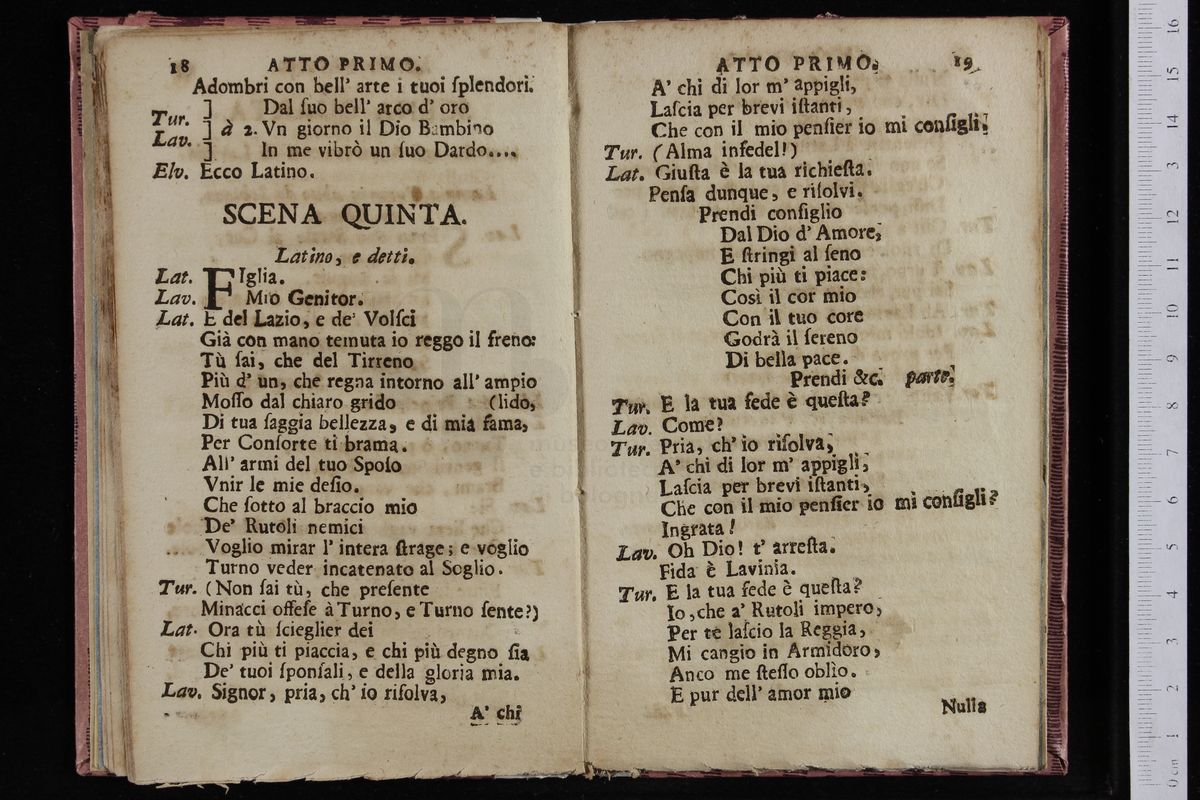 18 ATTO PRIMO.
Adombri con bell' arte i tuoi ſplendori.
Tur. ] Dal ſuo bell' arco d' oro
Lav. ] à 2. Vn giorno il Dio Bambino
] In me vibrò un ſuo Dardo....
Elv. Ecco Latino.
SCENA QUINTA.
Latino, e detti.
Lat. FIglia.
Lav. Mio Genitor.
Lat. E del Lazio, e de' Volſci
Già con mano temuta io reggo il freno:
Tù ſai, che del Tirreno
Più d' un, che regna intorno all' ampio
Moſſo dal chiaro grido (lido,
Di tua ſaggia bellezza, e di mia fama,
Per Conſorte ti brama.
All' armi del tuo Spoſo
Vnir le mie deſio.
Che ſotto al braccio mio
De' Rutoli nemici
Voglio mirar l' intera ſtrage; e voglio
Turno veder incatenato al Soglio.
Tur. (Non ſai tù, che preſente
Minacci offeſe à Turno, e Turno ſente?)
Lat. Ora tù ſcieglier dei
Chi più ti piaccia, e chi più degno ſia
De' tuoi ſponſali, e della gloria mia.
Lav. Signor, pria, ch' io riſolva,
A' chi
ATTO PRIMO. 19
A' chi di lor m' appigli,
Laſcia per brevi iſtanti,
Che con il mio penſier io mi conſigli.
Tur. (Alma infedel!)
Lat. Giuſta è la tua richieſta.
Penſa dunque, e riſolvi.
Prendi conſiglio
Dal Dio d' Amore,
E ſtringi al ſeno
Chi più ti piace:
Così il cor mio
Con il tuo core
Godrà il ſereno
Di bella pace.
Prendi &c. parte.
Tur. E la tua fede è queſta?
Lav. Come?
Tur. Pria, ch' io riſolva,
A' chi di lor m' appigli,
Laſcia per brevi iſtanti,
Che con il mio penſier io mi conſigli?
Ingrata!
Lav. Oh Dio! t' arreſta.
Fida è Lavinia.
Tur. E la tua fede è queſta?
Io, che a' Rutoli impero,
Per te laſcio la Reggia,
Mi cangio in Armidoro,
Anco me ſteſſo oblìo.
E pur dell' amor mio
Nulla